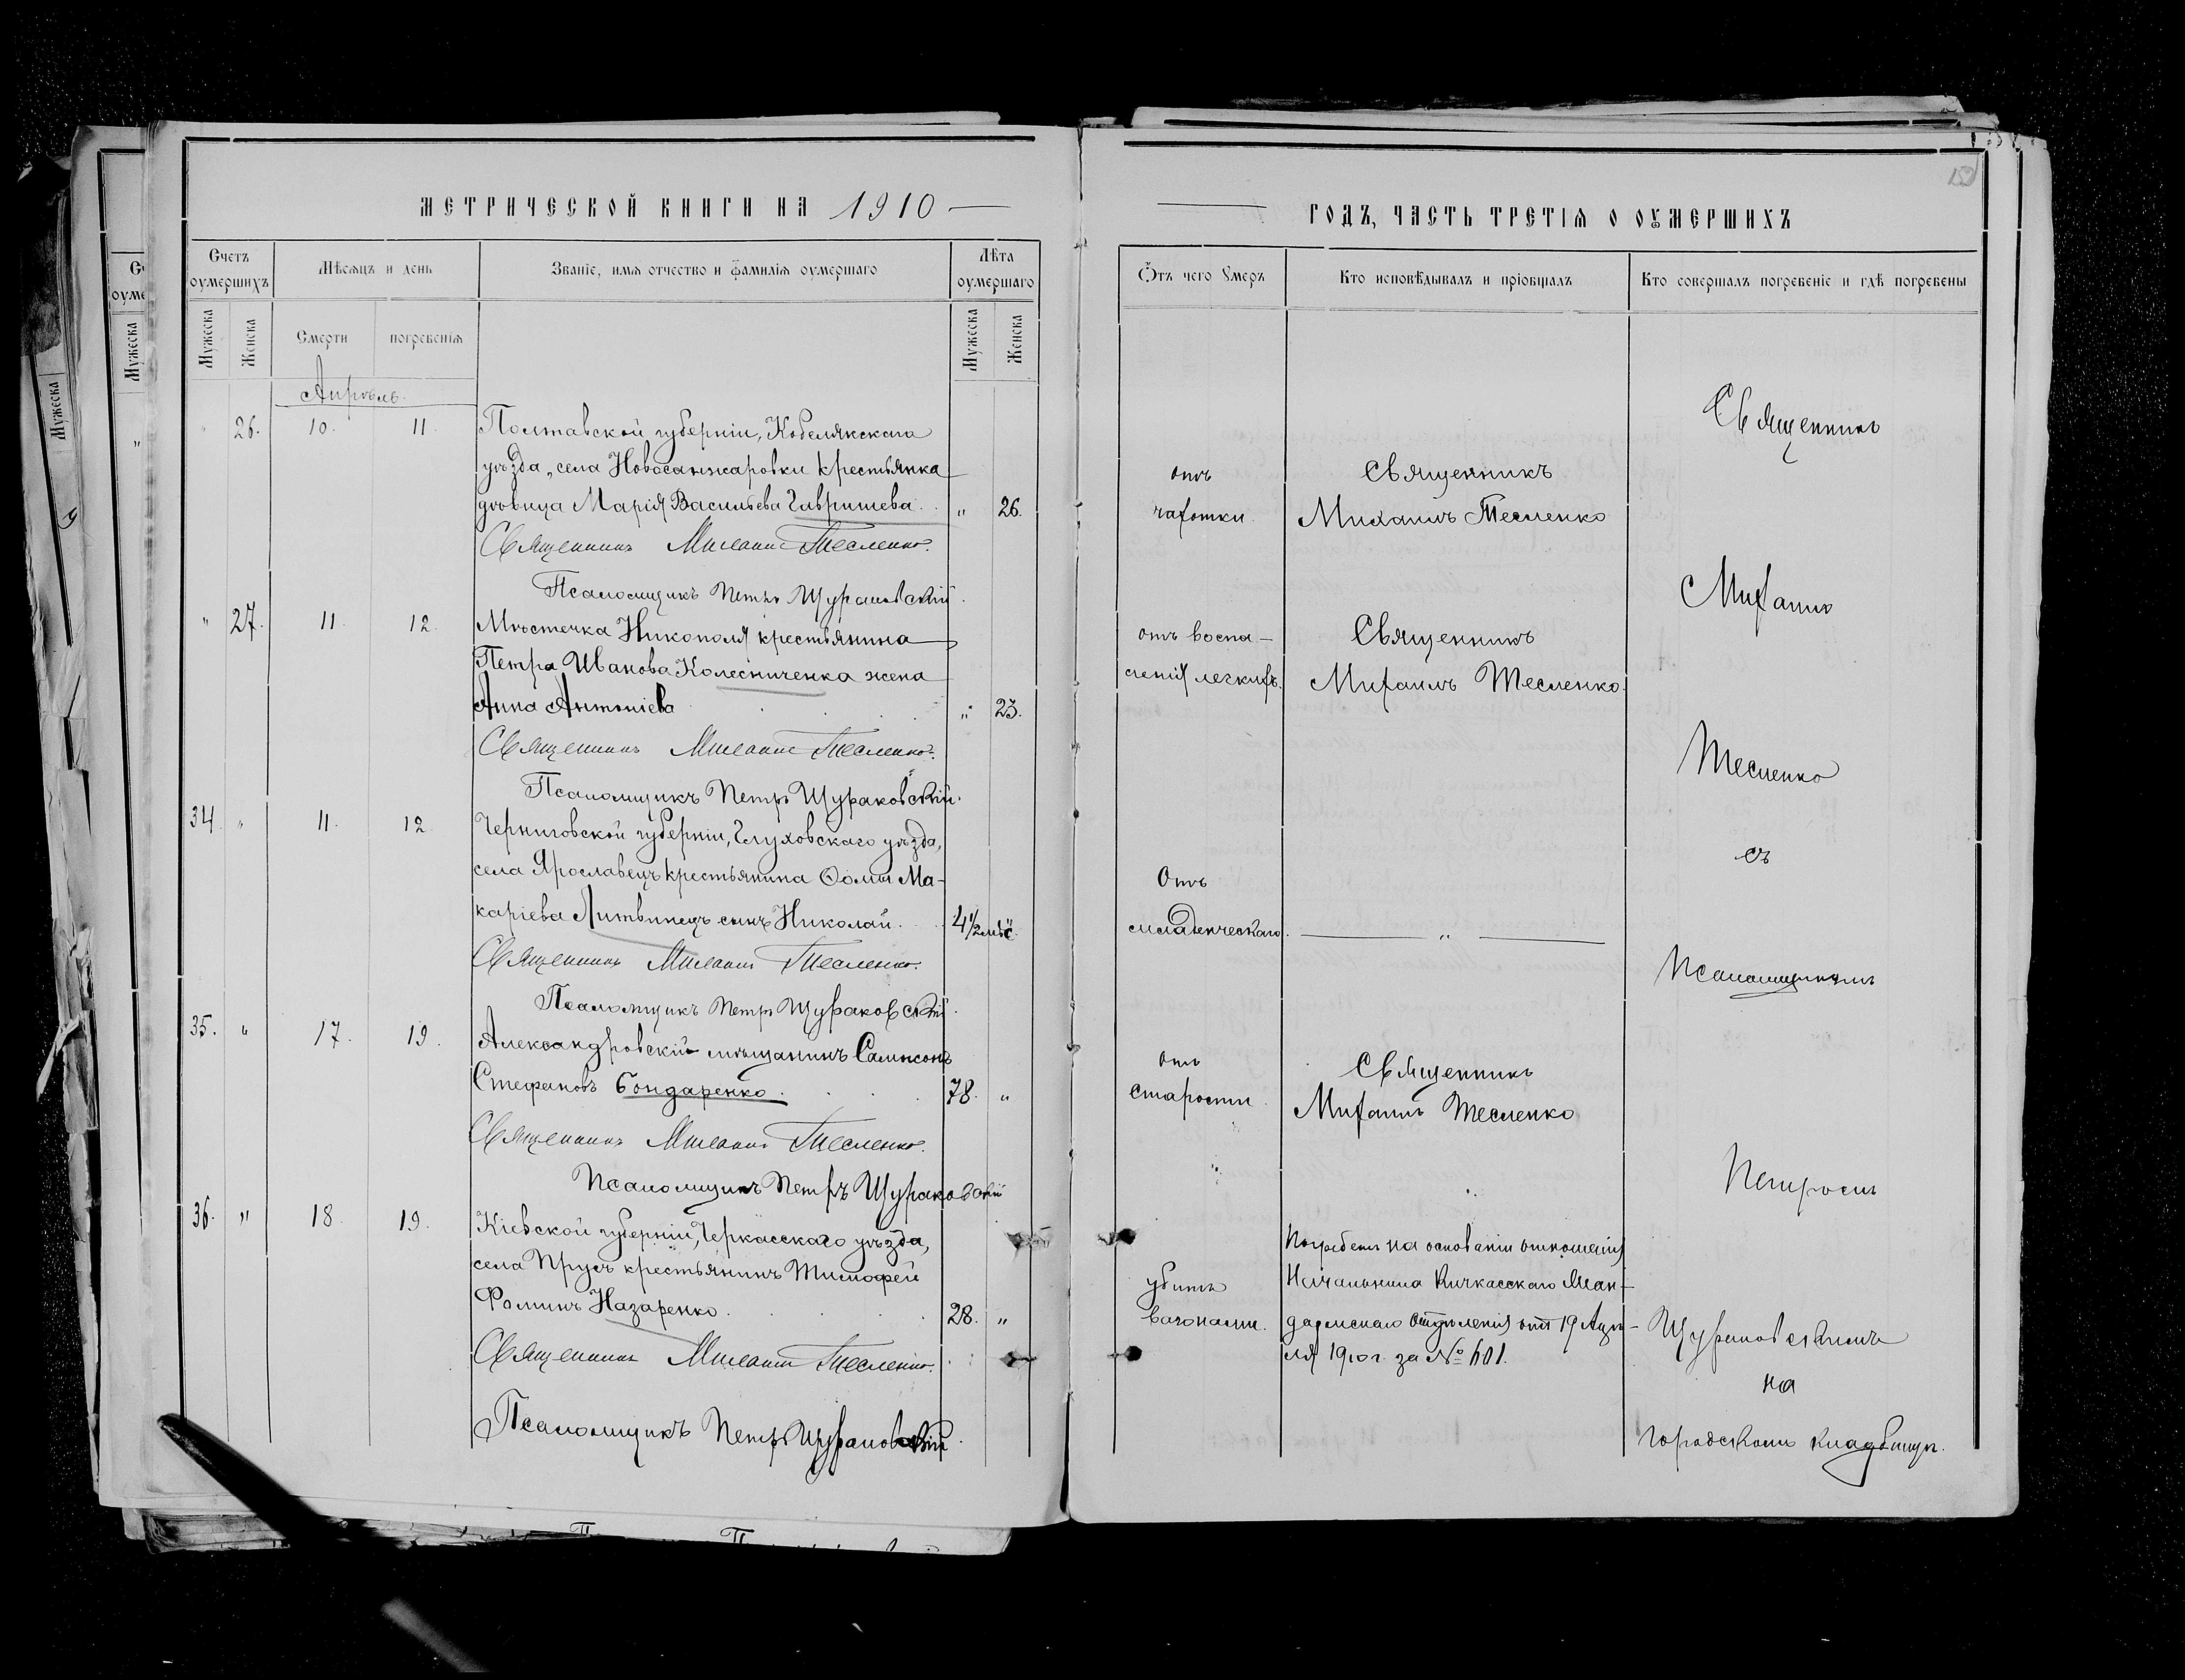 МЕТРИЧЕСКОЙ КНИГИ НА 1910
Счетъ оумершихъ
Мѣсяцъ и день
Званіе, имя отчество и фамилія оумершаго
Лѣта оумершаго
Мужеска
Женска
Смерти
погребенія
Мужеска
Женска
Апрѣль.
" 26. 10. 11. Полтавской губерніи, Кобелякскаго
уѣзда, села Новосанжаровки крестьянка
дѣвица Марія Васильева Гавришева. " 26.
Священникъ Михаилъ Тесленко.
Псаломщикъ Петръ Щураковскій.
" 27. 11. 12. Мѣстечка Никополя крестьянина
Петра Иванова Колесниченка жена
Анна Антоніева " 23.
Священникъ Михаилъ Тесленко.
Псаломщикъ Петръ Щураковскій.
34. " 11. 12. Черниговской губерніи, Глуховскаго уѣзда,
села Ярославецъ крестьянина Ѳомы Ма-
каріева Литвинецъ сынъ Николай. 4½ мѣс.
Священникъ Михаилъ Тесленко.
Псаломщикъ Петръ Щураковскій.
35. " 17. 19. Александровскій мѣщанинъ Сампсонъ
Стефановъ Бондаренко. 78. "
Священникъ Михаилъ Тесленко.
Псаломщикъ Петръ Щураковскій
36. " 18. 19. Кіевской губерніи, Черкасскаго уѣзда,
села Прусъ крестьянинъ Тимофей
Фоминъ Назаренко. 28. "
Священникъ Михаилъ Тесленко.
Псаломщикъ Петръ Щураковскій.
ГОДЪ, ЧАСТЬ ТРЕТІЯ О ОУМЕРШИХЪ
Отъ чего Умеръ
Кто исповѣдывалъ и пріобщалъ
Кто совершалъ погребеніе и гдѣ погребены
отъ
чахотки.
Священникъ
Михаилъ Тесленко
отъ воспа-
ленія легкихъ.
Священникъ
Михаилъ Тесленко.
Отъ
младенческаго.
"
отъ
старости.
Священникъ
Михаилъ Тесленко
убитъ
вагонами.
Погребенъ на основаніи отношенія
Начальника Кичкасскаго Жан-
дармскаго Отдѣленія отъ 19 Апрѣ-
ля 1910 г. за № 601.
Священникъ
Михаилъ
Тесленко
съ
Псаломщикомъ
Петромъ
Щураковскимъ
на
городскомъ кладбищѣ.